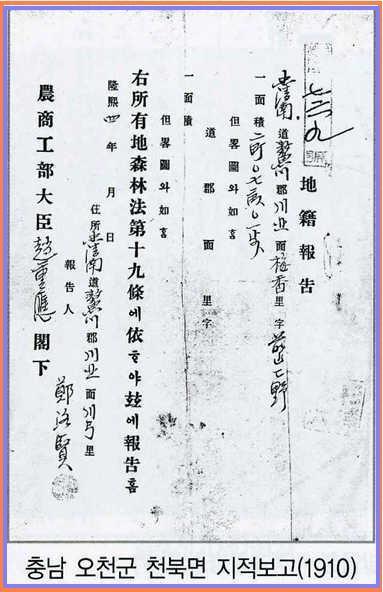 七三九
地籍報告
忠淸南道鰲川郡川北面梅香里字
一面積二町〇七畝〇一步
但畧圖와如홈
道郡面里字
一面積
但畧圖와如홈
右所有地森林法第十九條에依ᄒᆞ야玆에報告홈
隆熙四年月日
住所忠淸南道鰲川郡川北面川弓里
報告人鄭洛賢
農商工部大臣趙重應閣下
충남 오천군 천북면 지적보고(1910)